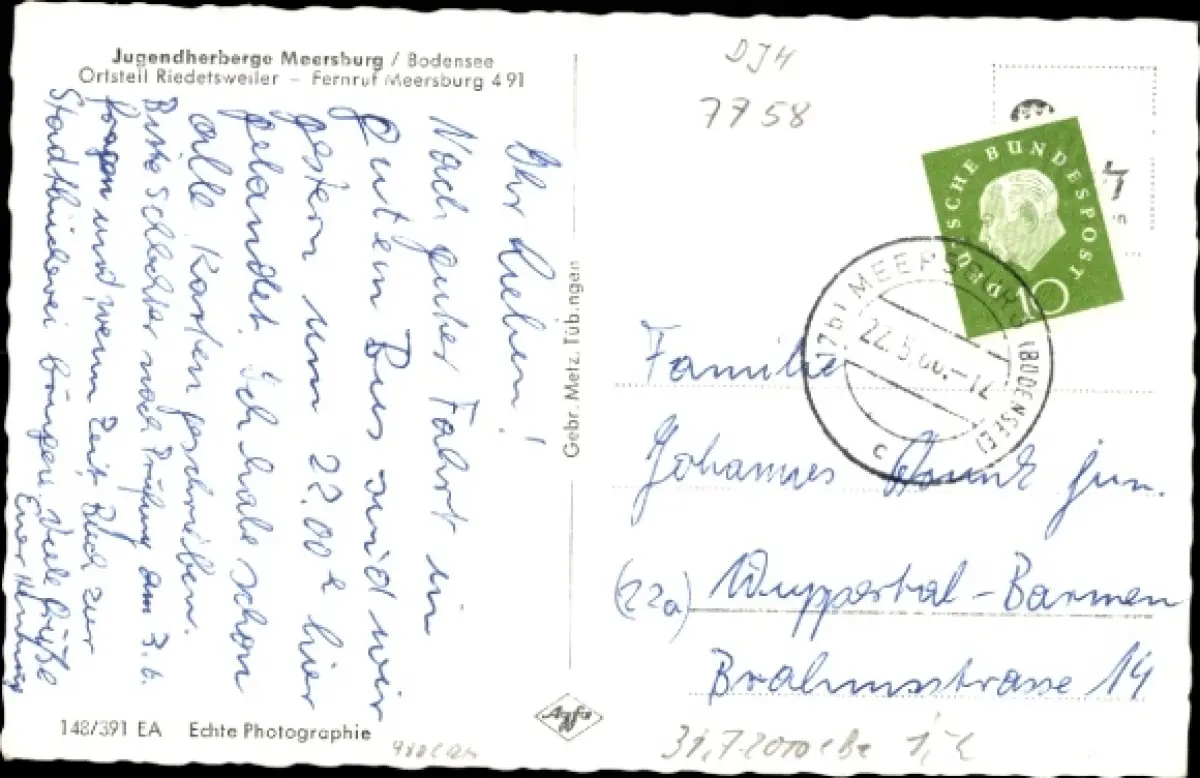 Jugendherberge Meersburg / Bodensee
Ortsteil Riedetsweiler – Fernruf Meersburg 491
Ihr Lieben!
Nach guter Fahrt in
gutem Bus sind wir
gestern um 22.00 hier
gelandet. Ich habe schon
alle Karten geschrieben.
Bitte Schlechter nach Prüfung am 3.6.
fragen und, wenn Zeit, Buch zur
Stadtbücherei bringen. Viele Grüße
Euer
148/391 EA Echte Photographie
Gebr. Metz, Tübingen
Agfa
DJH
7758
DEUTSCHE BUNDESPOST
10
(17b) MEERSBURG (BODENSEE)
22.5.60.-12
c
Familie
Johannes jun.
(22a) Wuppertal-Barmen
Brahmsstrasse 14
31.7.2010 1,-